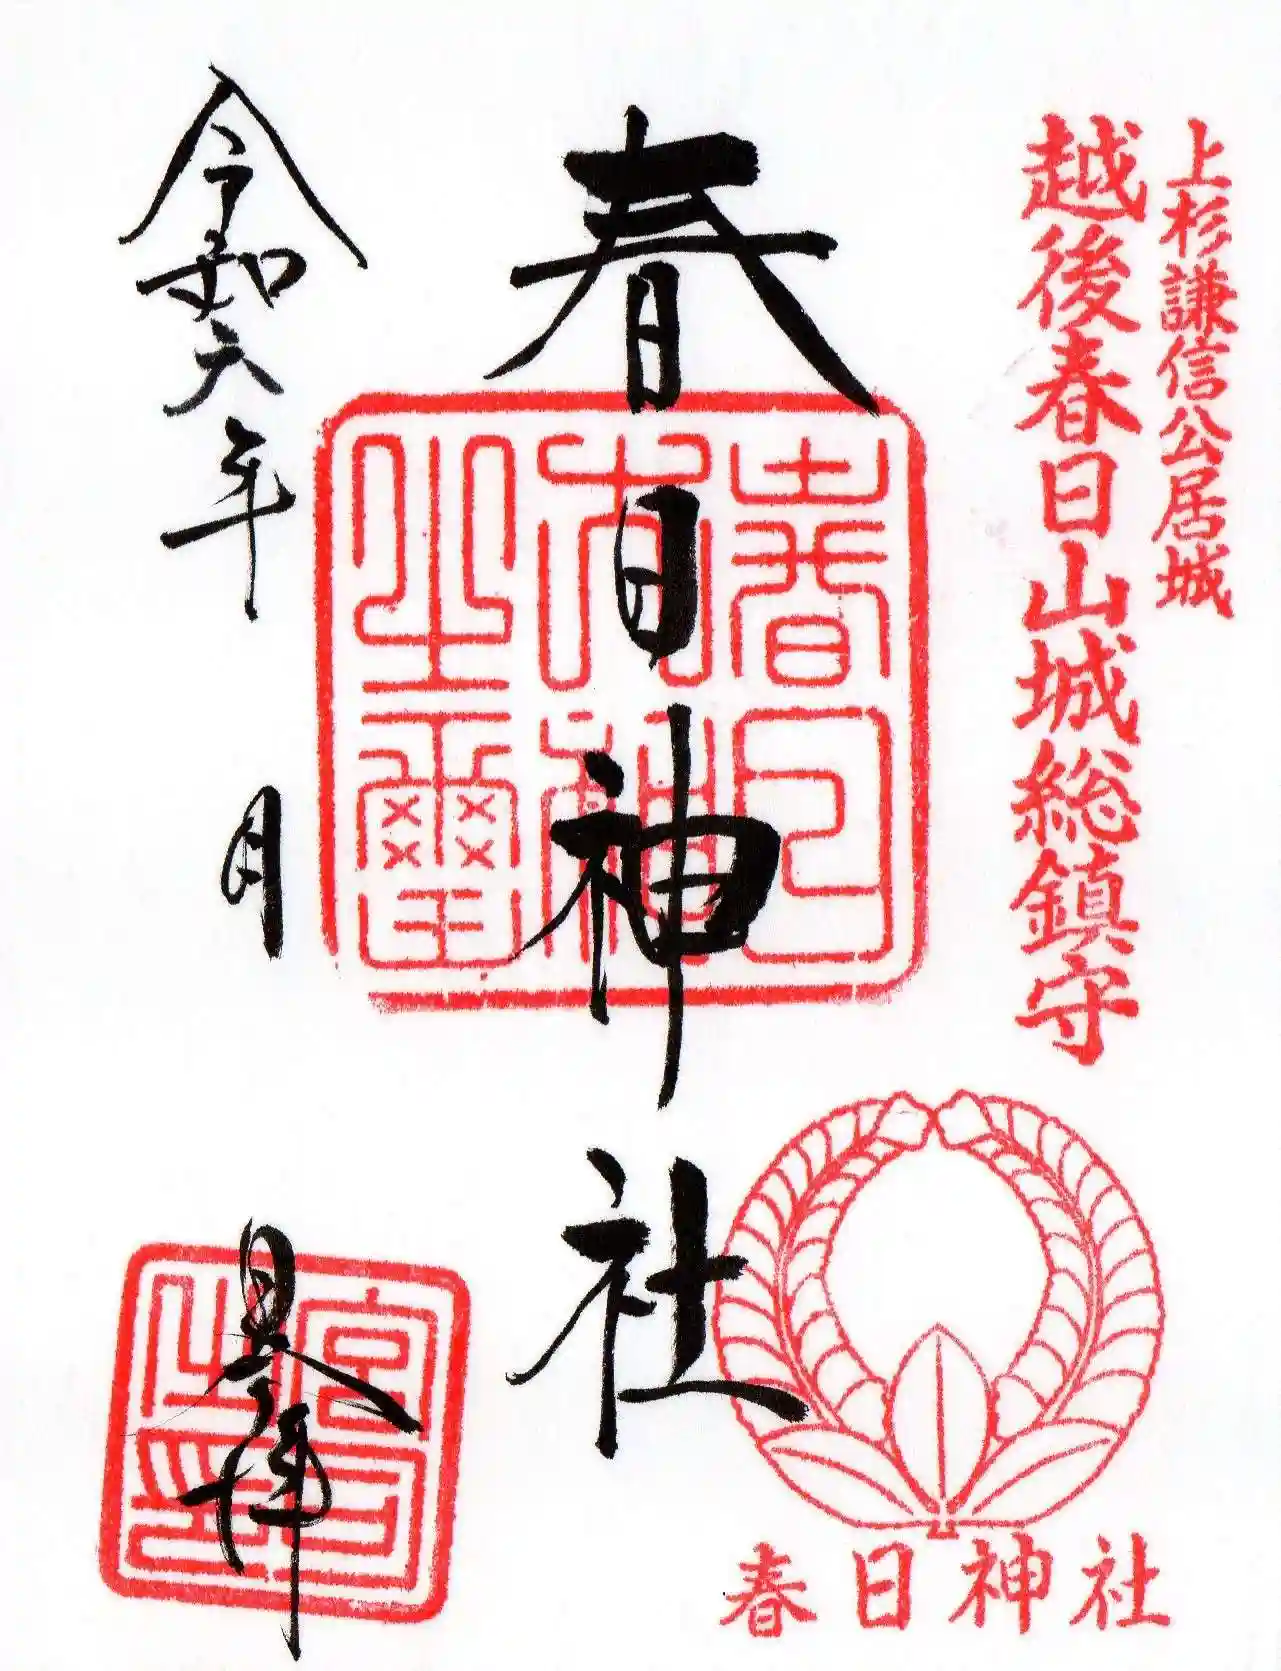 上杉謙信公居城
越後春日山城総鎮守
春日神社
春日大神之璽
春日神社
令和六年 月 日参拝
宮司之印